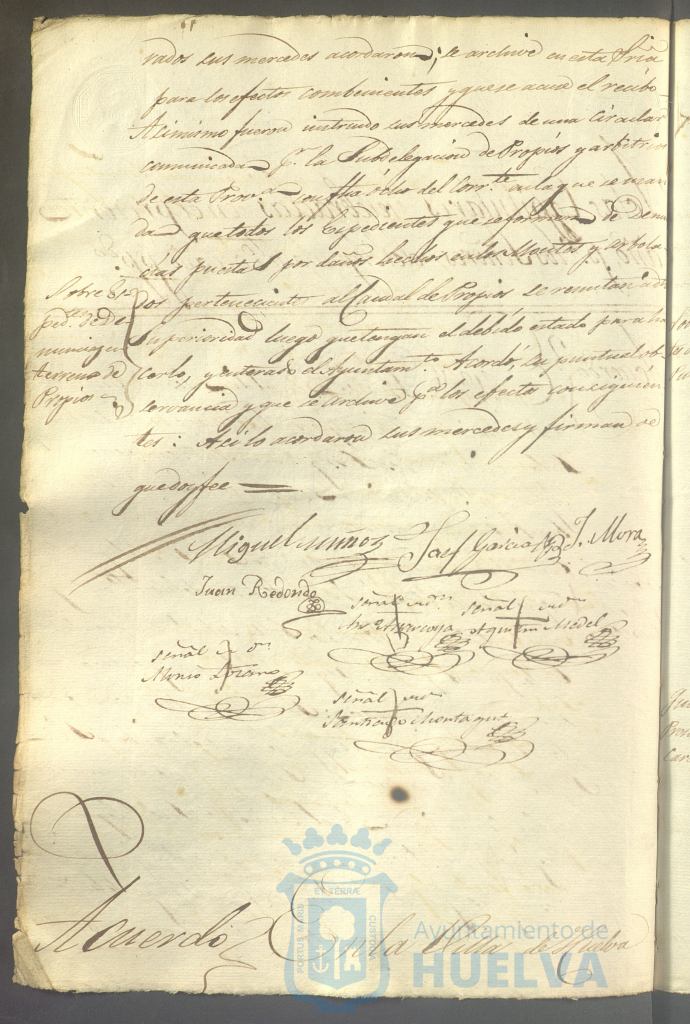 rados sus mercedes acordaron; se archive en esta Sría
para los efectos combenientes y que se acuse el recibo
Asimismo fueron instruido sus mercedes de una Circular
comunicada pr. la Subdelegacion de Propios y arbitrios
de esta Prova. con fha ocho del corrte. en la que se man
da que todos los Expedientes que se forman de denun
cias puestas por daños hechos en los Montes y arbola
dos perteneciente al Caudal de Propios se remitan a la
Superioridad luego que tengan el debido estado para ha
cerlo, y enterado el Ayuntamto. Acordó, su puntual ob
servancia y que se archive pa. los efectos consiguien
tes: Asi lo acordaron sus mercedes y firman de
que doy fee
Sobre Ex
pedtes. de de
nuncias en
terreno de
Propios
Miguel Muñoz Josef Garcia J. Mora
Juan Redondo
señal de
señal de
Medel
señal de
Lozano
señal de
Santiago Montagut
Acuerdo En la Villa de Huelva
PORTUS MARIS ET TERRÆ CUSTODIA
Ayuntamiento de
HUELVA